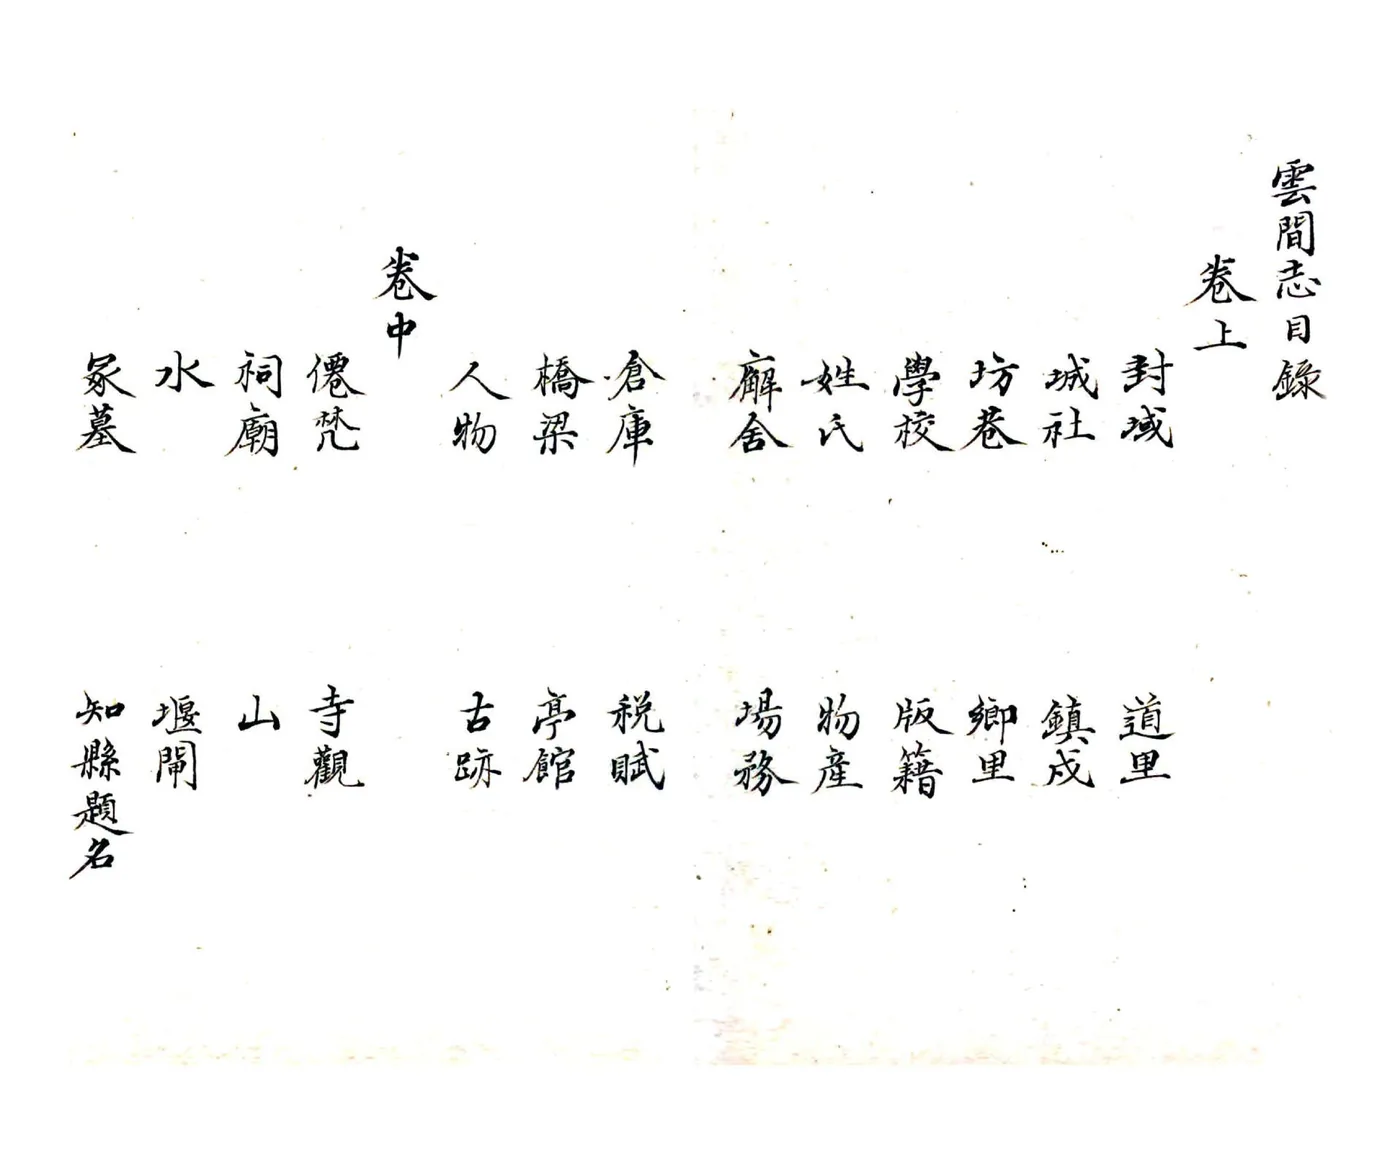 雲間志目錄
卷上
封域 道里
城社 鎮戍
坊巷 鄉里
學校 版籍
姓氏 物產
廨舍 場務
倉庫 稅賦
橋梁 亭館
人物 古跡
卷中
僊梵 寺觀
祠廟 山
水 堰閘
冢墓 知縣題名